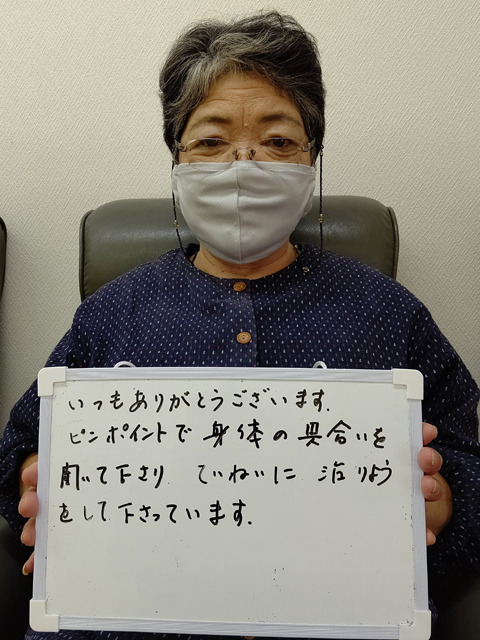 いつもありがとうございます.
ピンポイントで身体の具合いを
聞いて下さり ていねいに 治りよう
をして下さっています.